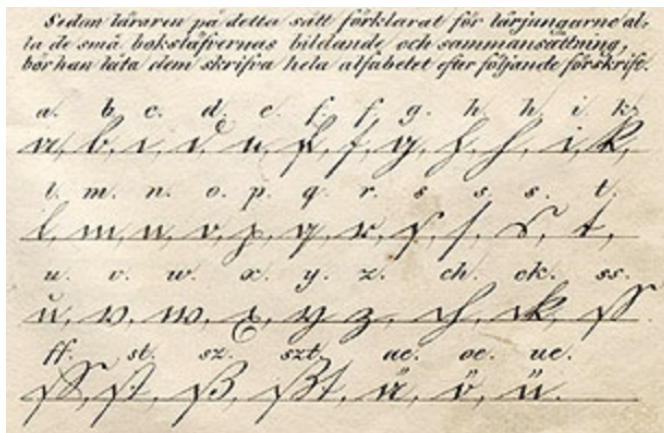 Sedan läraren på detta sätt förklarat för lärjungarne al-
la de små bokstäfvernas bildande och sammansättning,
bör han låta dem skrifva hela alfabetet efter följande förskrift.
a. b. c. d. e. f. f. g. h. h. i. k.
a, b, c, d, e, f, f, g, h, h, i, k,
l. m. n. o. p. q. r. s s. s. t.
l, m, n, o, p, q, r, s, s, s, t,
u. v. w. x. y. z. ch. ck. ss.
u, v, w, x, y, z, ch, ck, ss.
ff. st. sz. szt. ae. oe. ue.
ff, st, ß, ßt, ä, ö, ü.